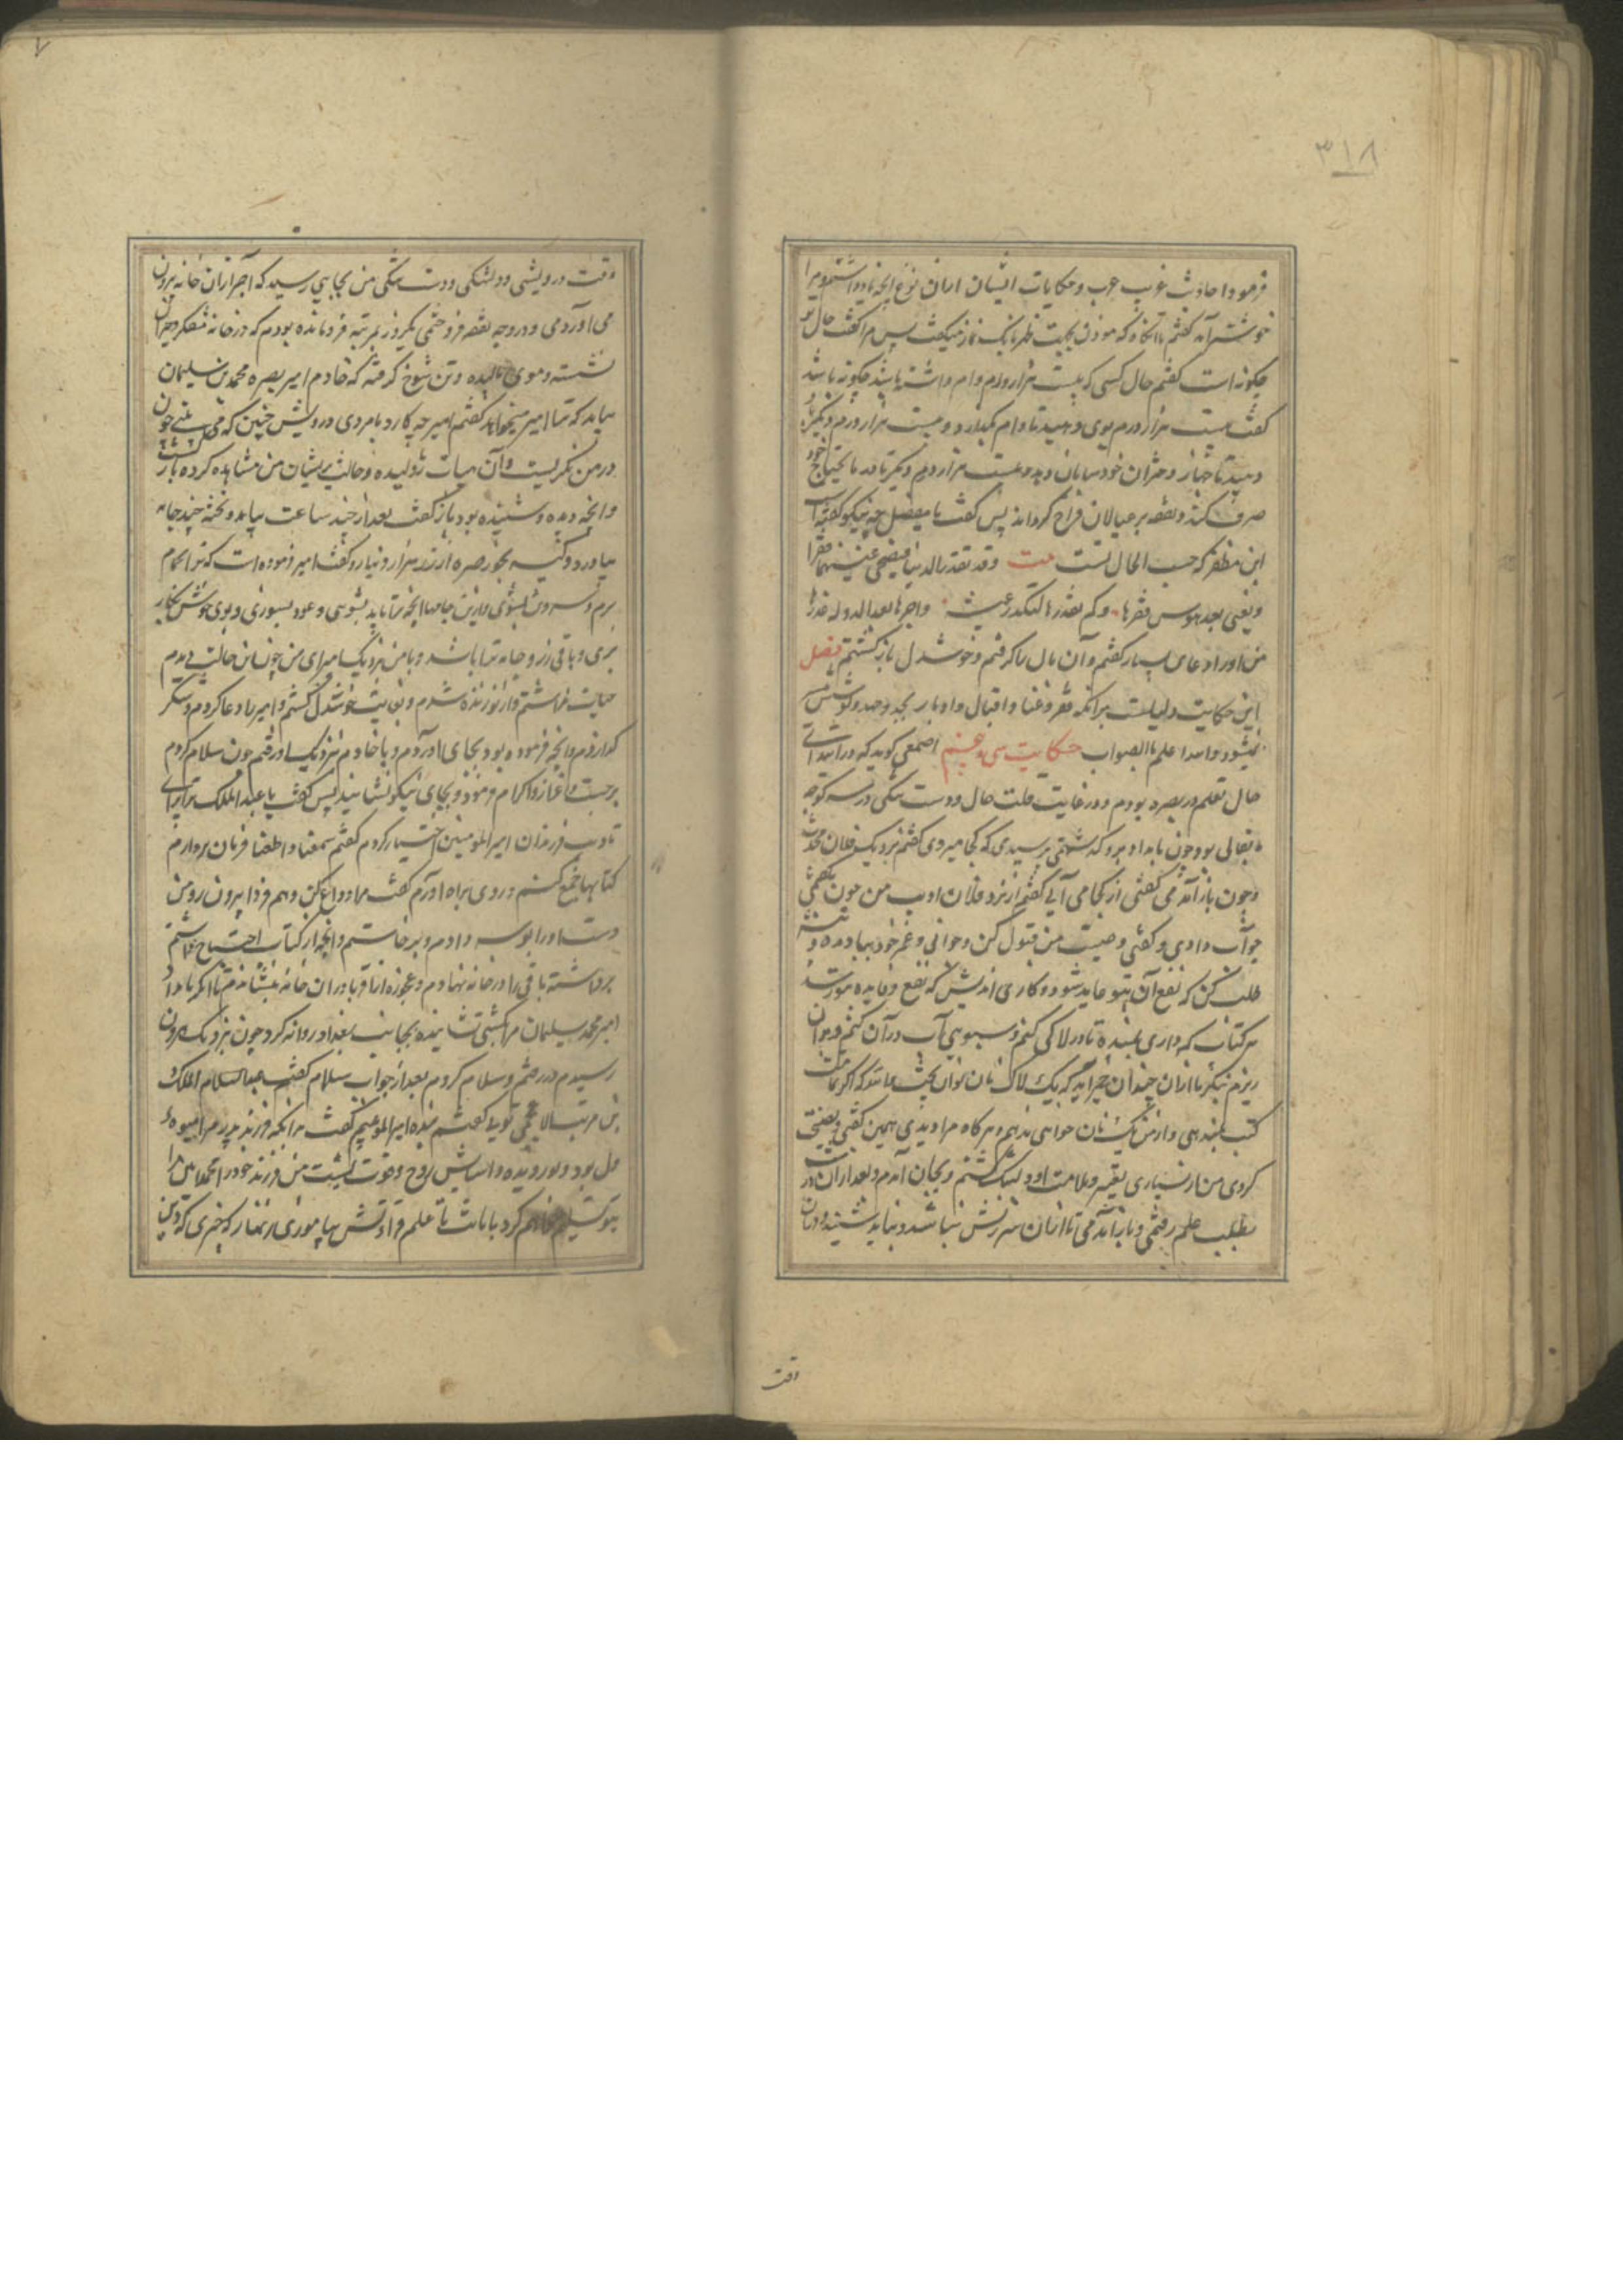 ۳۱۸
فرمود احادیث غریب عرب و حکایات ایشان ازان نوع آنچه یاد داشتم و مرا
خوشتر آمد گفتم تا آنگاه که موذن بجهت ظهر بانگ نماز میگفت پس مرا گفت حال تو
چگونه است گفتم حال کسی که بیست هزار درم وام داشته باشد چگونه باشد
گفت بیست هزار درم بوی دهید تا وام بگذارد و بیست هزار درم دیگر
دهید تا جهاز دختران خود سامان دهد و بیست هزار درم دیگر تا در مایحتاج خود
صرف کند و نفقه بر عیالان فراخ گرداند پس گفت یا مفضل چه نیکو گفته است
ابن مطیر که حسب الحال تست بیت وقد تغدر الدنیا فیضحی غنیها فقیرا
ویغنی بعد بوس فقرها وکم
من او را دعای بسیار گفتم و آن مال را گرفتم و خوشدل باز گشتم فصل
این حکایت دلیلست برانکه فقر و غنا و اقبال و ادبار بجد و جهد و کوشش
نمیشود والله اعلم بالصواب حکایت سی و هشتم اصمعی گوید که در ابتدای
حال تعلم در بصره بودم و در غایت قلت حال و دست تنگی در سر کوچه
بقالی بود چون بامداد برو گذشتمی پرسیدی که کجا میروی گفتم نزدیک فلان محدث
و چون باز آمدمی گفتی از کجا می آیی گفتم از نزد فلان ادیب من چون بگفتمی
جواب دادی و گفتی وصیت من قبول کن و جوانی و عمر خود بباد مده و
طلب کن که نفع آن بتو عاید شود و کاری اندیش که نفع و فایده
هر کتاب که داری بمن ده تا در لاکی کنم و سبویی آب در آن کنم
ریزم بنگر تا ازان چندان که بیک لاک نان توان پخت
کتب بمن دهی و از من یک نان خواهی ندهم و هرگاه مرا دیدی همین گفتی
کردی من از بسیاری تقریر و ملامت او دلتنگ گشتم و بجان آمدم و بعد ازان
بطلب علم رفتمی و باز آمدمی تا ازان سرزنش نباشد و نباید شنید
وقت
وقت درویشی و دلتنگی و دست تنگی من بجایی رسید که آجر ازان خانه بیرون
می آوردمی و در وجه نفقه فروختمی یکروز بمرتبه فرومانده بودم که در خانه متفکر و حیران
نشسته و موی بالیده و تن شوخ گرفته که خادم امیر بصره محمد بن سلیمان
بیامد که ترا امیر میخواند گفتم امیر چه کار دارد با مردی درویش چنین که می بینی چون
در من نگریست و آن هیات ژولیده و حالت پریشان من مشاهده کرده باز گشت
و آنچه دیده و شنیده بود باز گفت بعد از چند ساعت بیامد و تخته چند جامه
بیاورد و کیسه بخور صره از زر هزار دینار و گفت امیر فرموده است که ترا بحمام
برم و سر و تن بشوئی و ازین جامها آنچه شاید بپوشی و عود بسوزی و بوی خوش بکار
بری و باقی زر و جامه ترا باشد و با من نزدیک امیر ای من چون این حالت بدیدم
حیات نداشتم و از نو زنده شدم و بغایت خوشدل گشتم و امیر را دعا کردم و شکر
گذاردم و آنچه فرموده بود بجای آوردم و با خادم نزدیک او رفتم چون سلام کردم
برجست و اعزاز و اکرام فرمود و بجای نیکو نشانید پس گفت یا عبد الملک ترا برای
تادیب فرزندان امیر المومنین اختیار کردم گفتم سمعنا و اطعنا فرمان بردارم
کتابها جمع کنم و روی براه آورم گفت ما را وداع کن و هم فردا بیرون رو من
دست او را بوسه دادم و برخاستم و آنچه از کتاب احتیاج داشتم
برداشته باقی را در خانه نهادم و عجوزه از اقربا در ان خانه بنشاندم تا اکر بامداد
امیر محمد سلیمان مرا بکشتی نشانیده بجانب بغداد روانه کرد چون نزدیک هرون
رسیدم در رفتم و سلام کردم بعد از جواب سلام گفت عبد الملک
گفتم بنده امیر المومنینم گفت بدانکه فرزند پدر را میوه
دل بود و نور دیده و آسایش روح و قوت پشت من فرزند خود را محمد امین را
بتو تسلیم خواهم کرد با مانت تا علم و آدابش بیاموزی زنهار که چیزی که